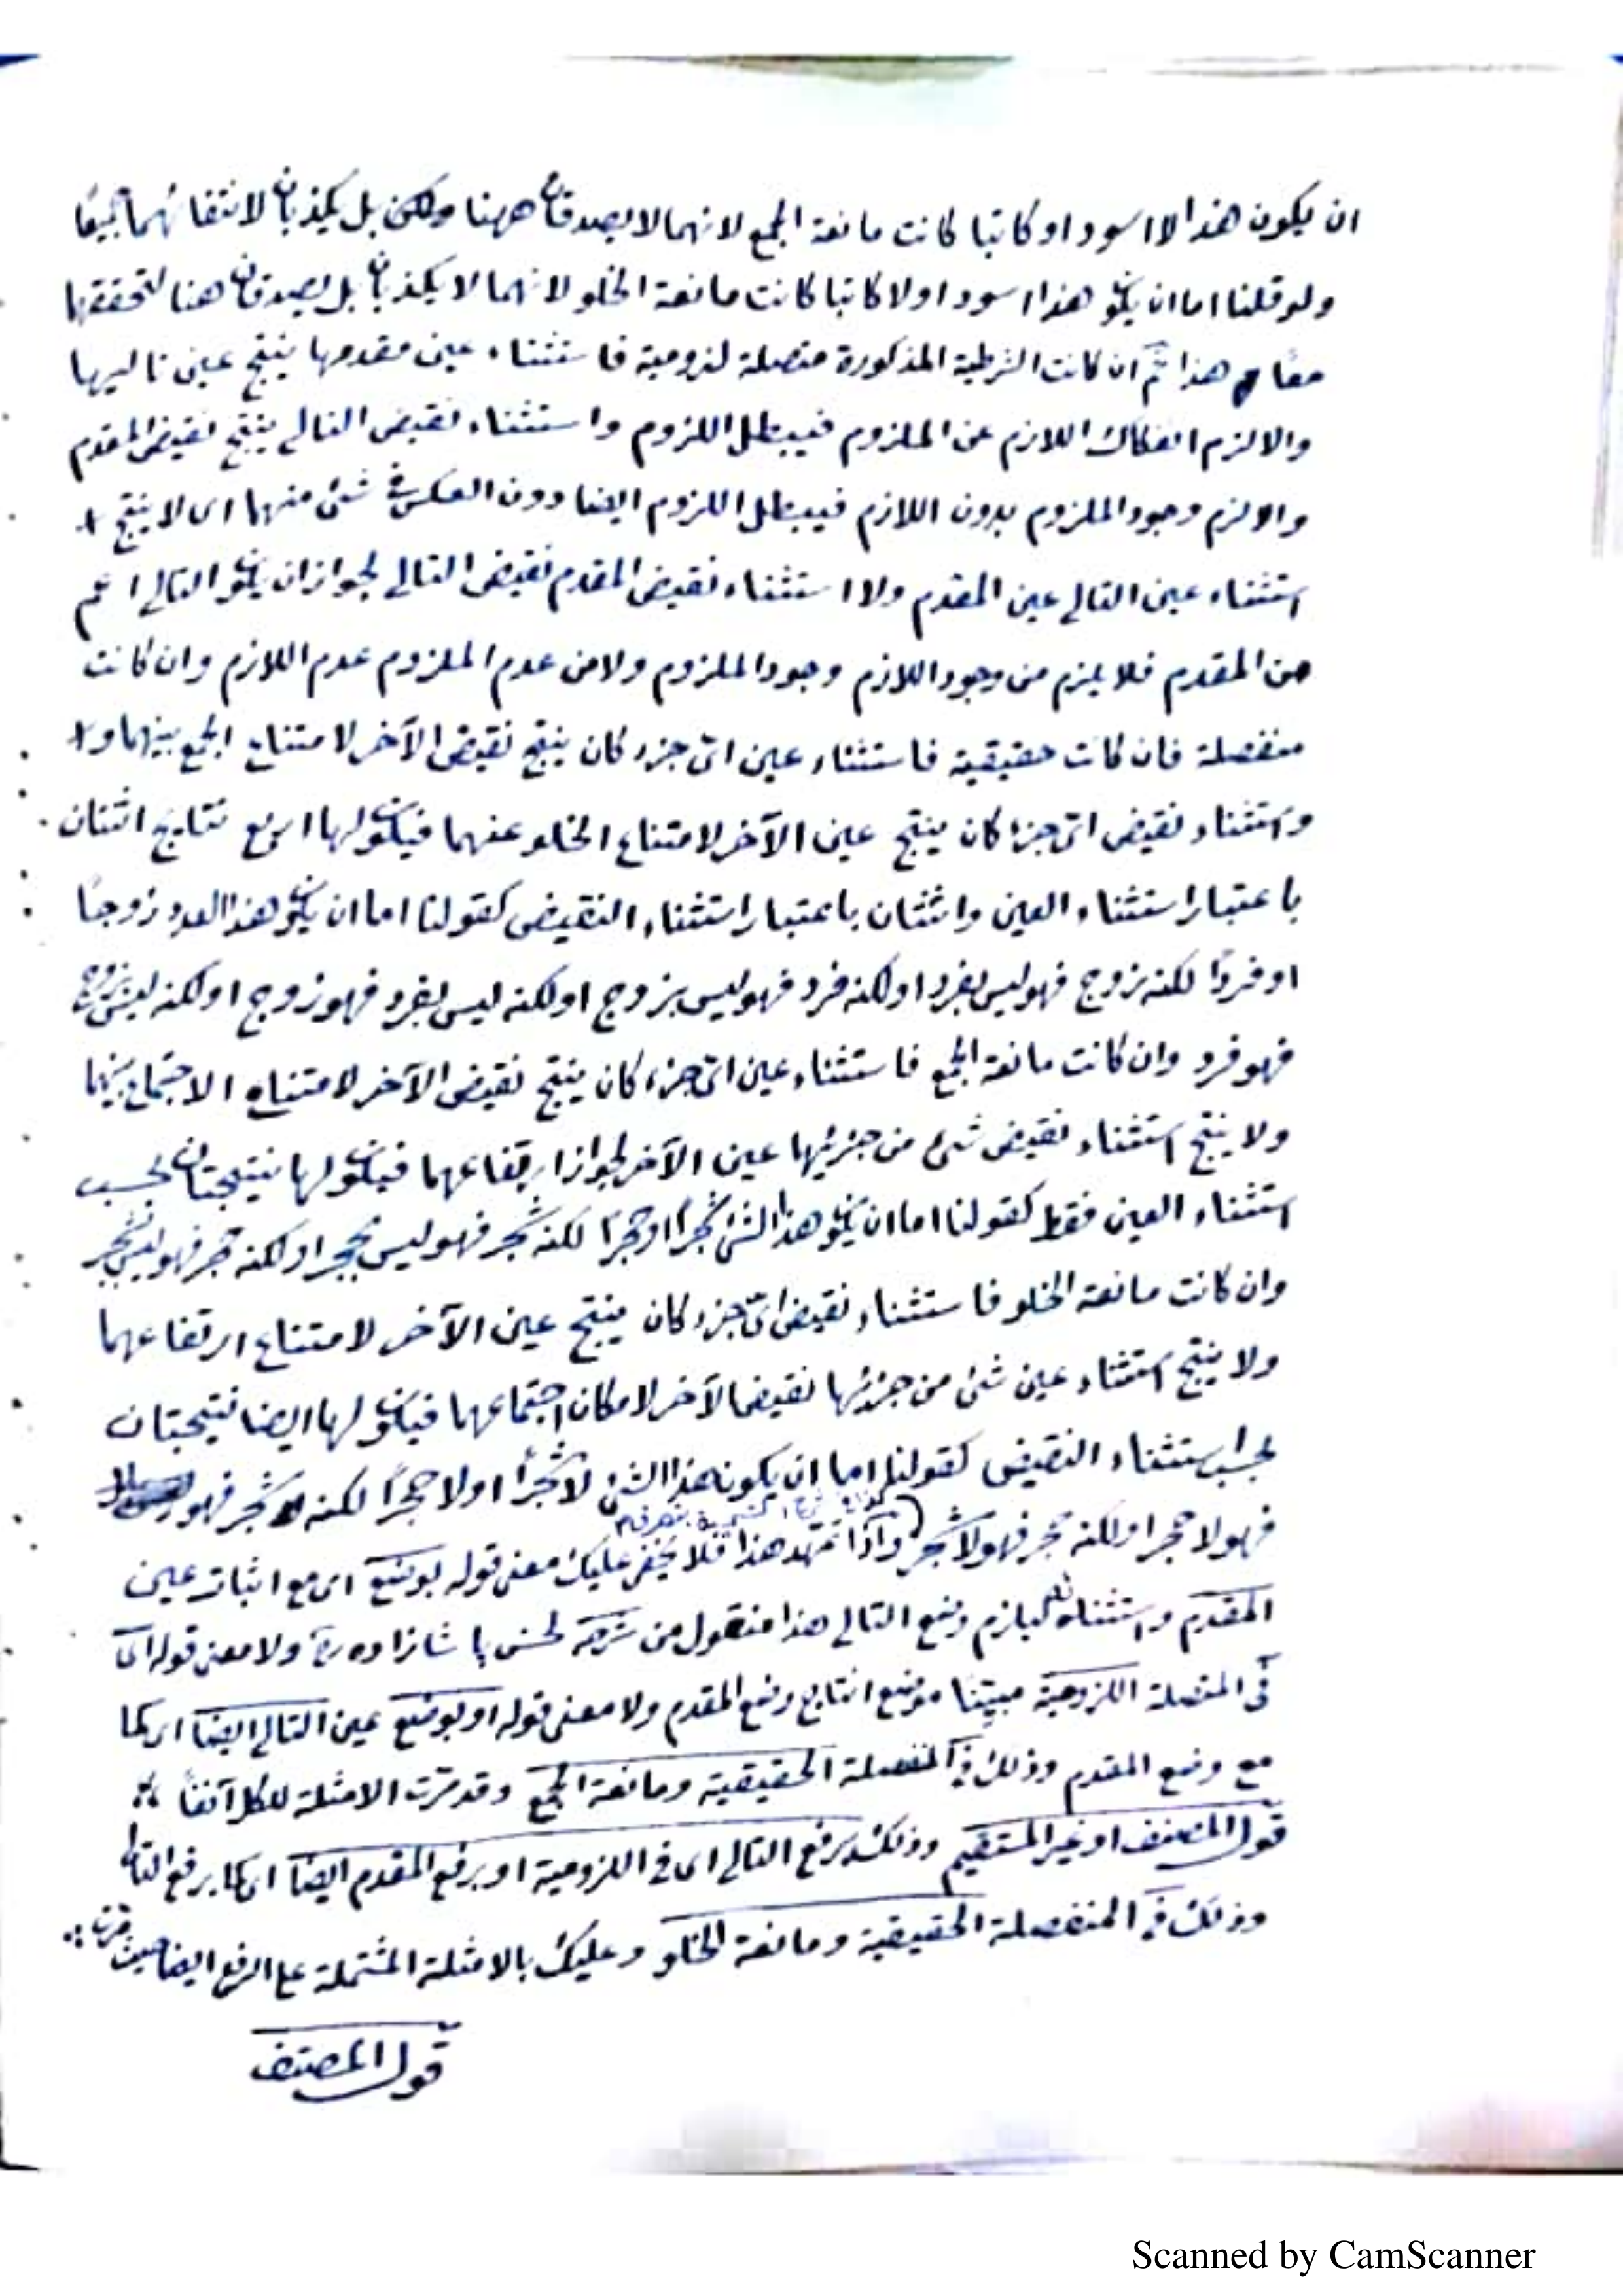 ان يكون هذا لا اسود او كاتبا كانت مانعة الجمع لانهما لا يصدقان ههنا ولكن بل يكذبان لانتفائهما جميعًا
ولو قلنا اما ان يكون هذا اسود او لا كاتبا كانت مانعة الخلو لانهما لا يكذبان بل يصدقان هنا لتحققهما
معًا هذا ثم ان كانت الشرطية المذكورة متصلة لزومية فاستثناء عين مقدمها ينتج عين تاليها
والا لزم انفكاك اللازم عن الملزوم فيبطل اللزوم واستثناء نقيض التالي ينتج نقيض المقدم
والا لزم وجود الملزوم بدون اللازم فيبطل اللزوم ايضا دون العكس في شئ منهما اى لا ينتج
استثناء عين التالي عين المقدم ولا استثناء نقيض المقدم نقيض التالي لجواز ان يكون التالي اعم
من المقدم فلا يلزم من وجود اللازم وجود الملزوم ولا من عدم الملزوم عدم اللازم وان كانت
منفصلة فان كانت حقيقية فاستثناء عين اىّ جزء كان ينتج نقيض الآخر لامتناع الجمع بينهما و
واستثناء نقيض اىّ جزء كان ينتج عين الآخر لامتناع الخلو عنهما فيكون لها اربع نتايج اثنتان
باعتبار استثناء العين واثنتان باعتبار استثناء النقيض كقولنا اما ان يكون هذا العدد زوجًا
او فردًا لكنه زوج فهو ليس بفرد او لكنه فرد فهو ليس بزوج او لكنه ليس بفرد فهو زوج او لكنه ليس بزوج
فهو فرد وان كانت مانعة الجمع فاستثناء عين اىّ جزء كان ينتج نقيض الآخر لامتناع الاجتماع بينهما
ولا ينتج استثناء نقيض شئ من جزئيها عين الآخر لجواز ارتفاعهما فيكون لها نتيجتان بحسب
استثناء العين فقط كقولنا اما ان يكون هذا الشئ شجرًا او حجرًا لكنه شجر فهو ليس بحجر او لكنه حجر فهو ليس بشجر
وان كانت مانعة الخلو فاستثناء نقيض اىّ جزء كان ينتج عين الآخر لامتناع ارتفاعهما
ولا ينتج استثناء عين شئ من جزئيها نقيض الآخر لامكان اجتماعهما فيكون لها ايضا نتيجتان
بحسب استثناء النقيض كقولنا اما ان يكون هذا الشئ لا شجرًا او لا حجرًا لكنه شجر فهو
فهو لا حجر او لكنه حجر فهو لا شجر واذا تمهد هذا فلا يخفى عليك معنى قوله بوضع اى مع اثبات عين
المقدم واستثنائه وضع التالي هذا منقول من شرحه لحسن پاشا زاده ره ولا معنى قوله اى
في المتصلة اللزومية مبيّنا موضع انتاج وضع المقدم ولا معنى قوله او بوضع عين التالي ايضا اى كما
مع وضع المقدم وذلك في المنفصلة الحقيقية ومانعة الجمع وقد مرّت الامثلة للكل آنفًا
قول المصنف او غير المستقيم وذلك برفع التالي اى في اللزومية او برفع المقدم ايضا اى كما يرفع التالي
وذلك في المنفصلة الحقيقية ومانعة الخلو وعليك بالامثلة المشتملة على الرفع ايضا حيث مرّت
قول المصنف
Scanned by CamScanner